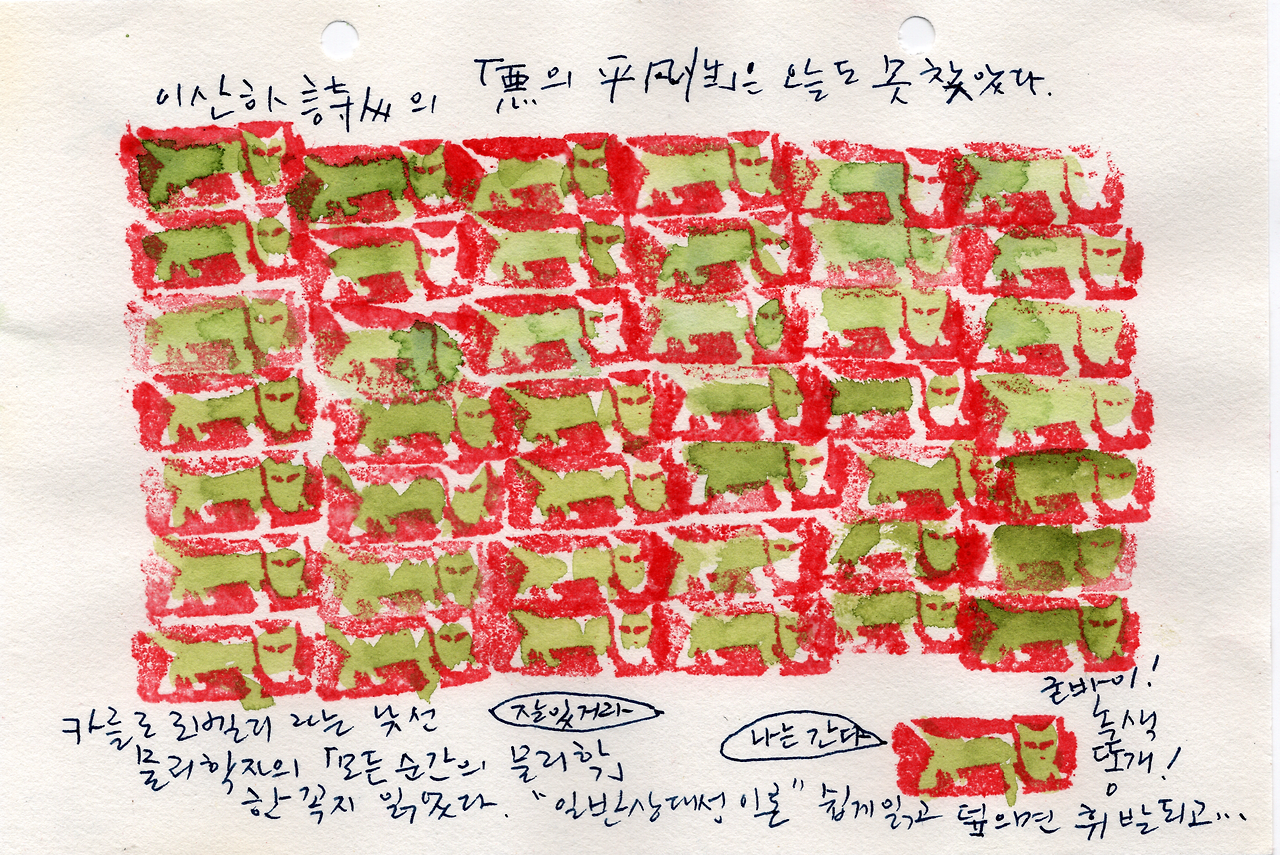 이산하 詩씨의 「悪의 平凡生」은 오늘도 못 찾았다.
굳바이!
녹색
똥개!
잘있거라
나는 간다
카를로 로벨리 라는 낯선
물리학자의 「모든 순간의 물리학」
한 꼭지 읽었다. "일반상대성이론" 쉽게 읽고 덮으면 휘발되고...